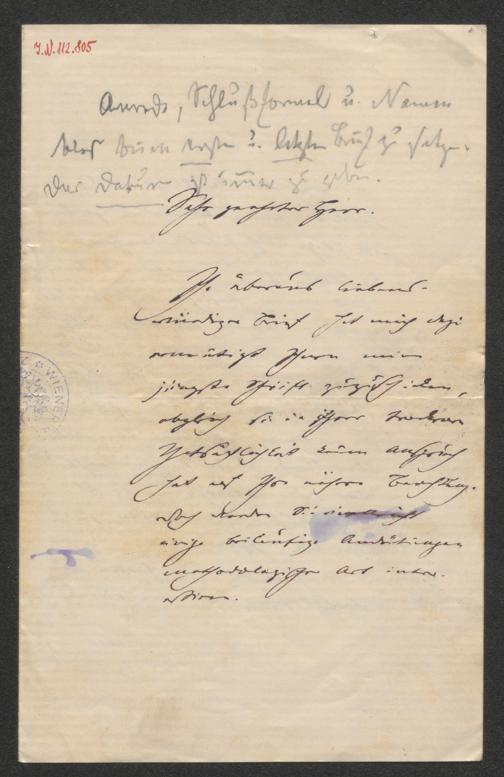 J.N. 112.805
Anrede, Schlußformel u. Namen
blos beim ersten u. letzten Brief zu setzen.
Das Datum ist immer zu geben.
Sehr geehrter Herr.
Ihr überaus liebens-
würdiger Brief hat mich dazu
ermutigt Ihnen meine
jüngste Schrift zuzuschicken,
obgleich sie in ihrer trockenen
Thatsächlichkeit kaum Anspruch
hat auf Ihre nähere Beachtung.
Doch dürften Sie vielleicht
einige beiläufige Andeutungen
methodologischer Art inter-
essiren.
WIENER